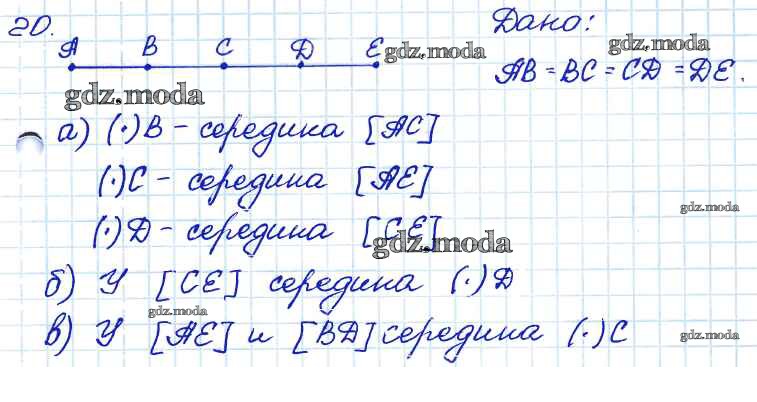 20.
Дано:
A B C D E gdz.moda
gdz.moda
AB = BC = CD = DE.
gdz.moda
а) (·)B - середина [AC]
(·)C - середина [AE]
gdz.moda
(·)D - середина [CE]
gdz.moda
б) У [CE] середина (·)D
gdz.moda
в) У [AE] и [BD] середина (·)C
gdz.moda